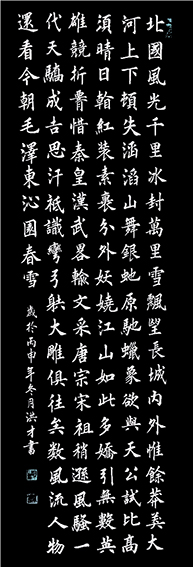 北國風光千里冰封萬里雪飄望長城內外惟餘莽莽大
河上下頓失滔滔山舞銀蛇原馳蠟象欲與天公試比高
須晴日看紅裝素裹分外妖嬈江山如此多嬌引無數英
雄競折腰惜秦皇漢武略輸文采唐宗宋祖稍遜風騷一
代天驕成吉思汗祇識彎弓射大雕俱往矣数風流人物
還看今朝毛澤東沁園春雪
歲於丙申年冬月洪才書